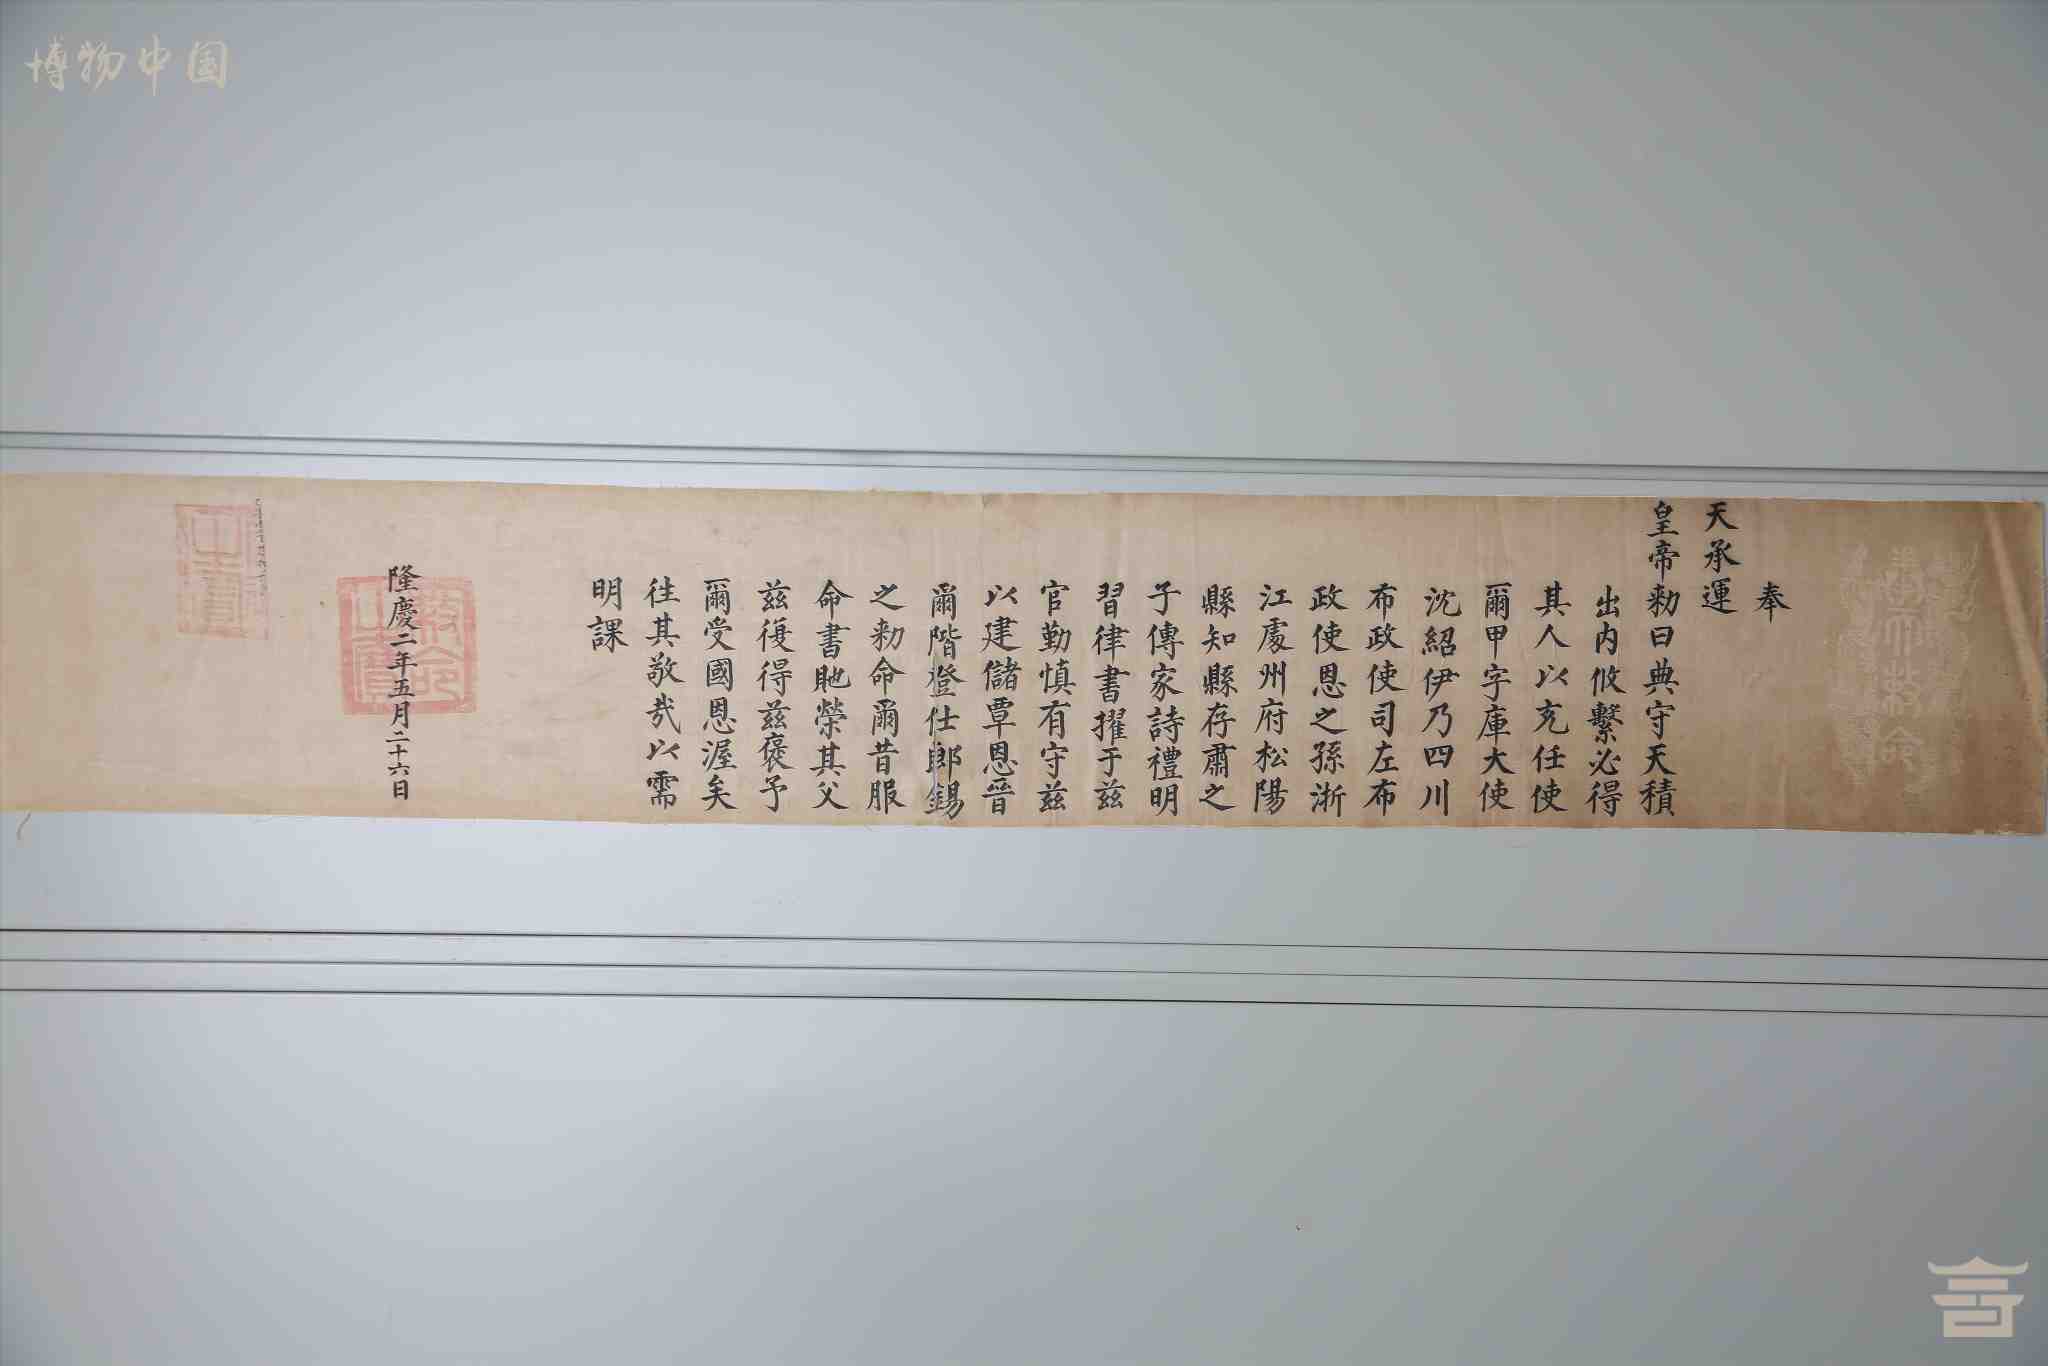 博物中国
奉
天承運
皇帝勑曰典守天積
出内攸繫必得
其人以充任使
爾甲字庫大使
沈紹伊乃四川
布政使司左布
政使恩之孫浙
江處州府松陽
縣知縣存肅之
子傳家詩禮明
習律書擢于茲
官勤慎有守茲
以建儲覃恩晉
爾階登仕郎錫
之勑命爾昔服
命書貤榮其父
茲復得茲褒予
爾受國恩渥矣
往其敬哉以需
明課
隆慶二年五月二十六日
敕命之寶